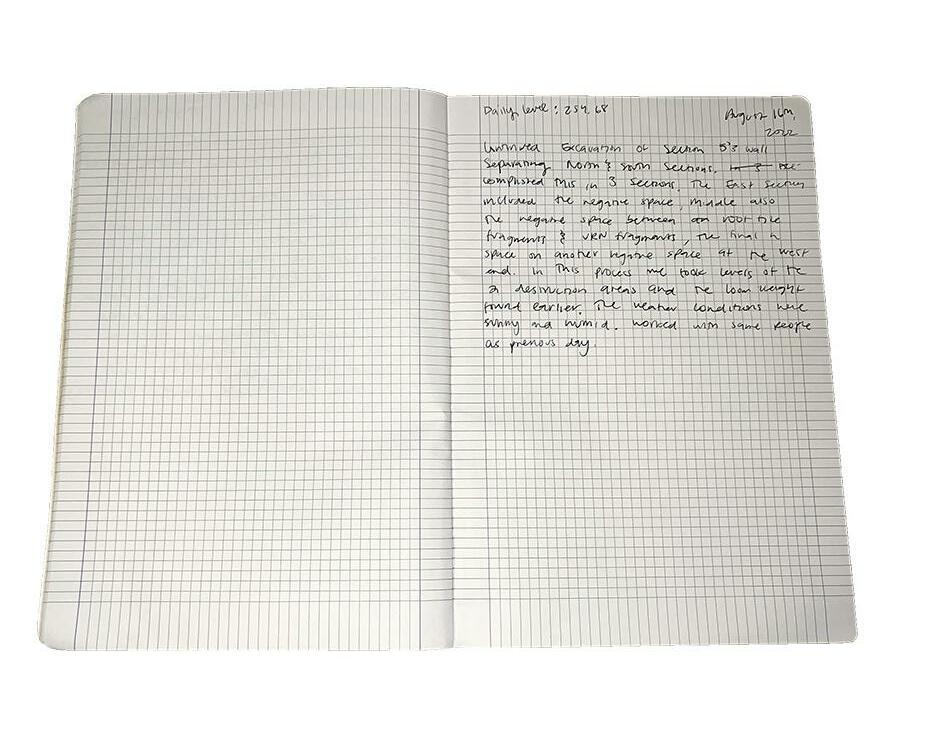 Daily level: 254.68
August 16th,
2022
Excavation of Section 5's wall
Separating North & South Sections.
this in 3 Sections. The East Section
included the negative space, middle also
the negative space between roof tile
fragments & fragments, the final
space on another negative space at the west
end. in this process we took levels of the
2 destruction areas and the loom weight
found earlier. The weather conditions were
sunny and humid. worked with same people
as previous day.